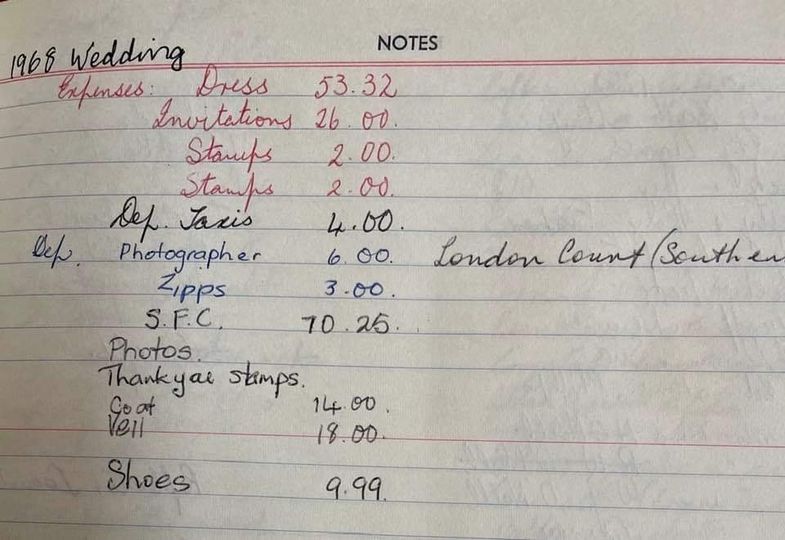 NOTES
1968 Wedding
Expenses: Dress 53.32
Invitations 26.00.
Stamps 2.00.
Stamps 2.00.
Dep. Taxis 4.00.
Dep. Photographer 6.00. London Count (South en
Zipps 3.00.
S.F.C. 70.25.
Photos.
Thankyae stamps.
Coat 14.00.
Veil 18.00.
Shoes 9.99.